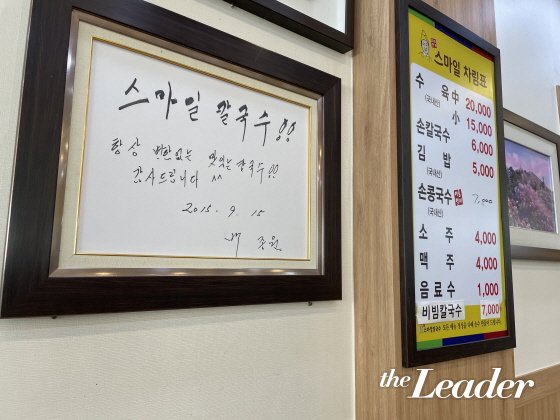 스마일 칼국수!!
항상 변함없는 맛있는 칼국수!!
감사드립니다 ^^
2015. 9. 15
백종원
스마일 차림표
수 육 中 20,000
(국내산) 小 15,000
손칼국수 6,000
김 밥 5,000
(국내산)
손콩국수 7,000
(국내산)
소 주 4,000
맥 주 4,000
음료수 1,000
비빔칼국수 7,000
the Leader